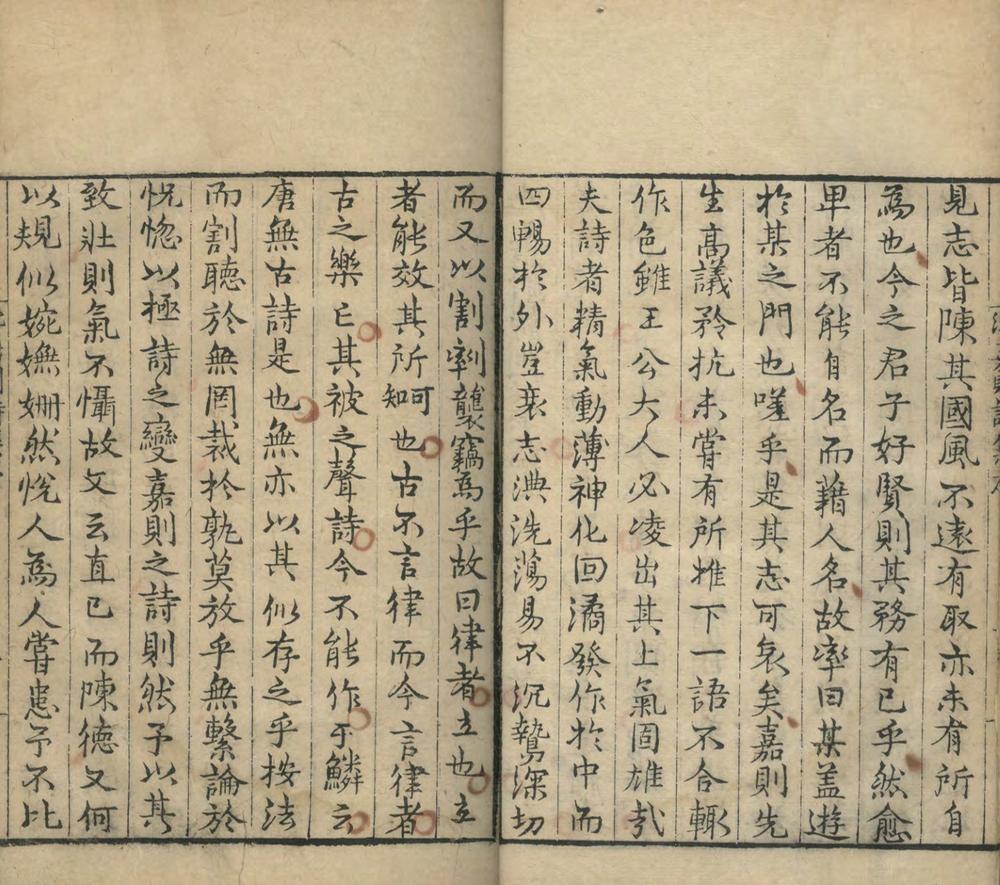 見志皆陳其國風不遠有取亦未有所自
為也今之君子好賢則其務有已乎然愈
卑者不能自名而藉人名故率曰某盖遊
於某之門也嗟乎是其志可哀矣嘉則先
生高議矜抗未嘗有所推下一語不合輒
作色雖王公大人必凌出其上氣固雄哉
夫詩者精氣動薄神化回潏發作於中而
四暢於外豈衰志㳿洗蕩易不沉鷙深切
而又以割剝襲竊為乎故曰律者立也立
者能效其所可知也古不言律而今言律者
古之樂亡其被之聲詩今不能作于鱗云
唐無古詩是也無亦以其似存之乎按法
而割聽於無罔裁於孰莫放乎無繫論於
怳惚以極詩之變嘉則之詩則然予以其
致壯則氣不懾故文云直已而陳德又何
以規似婉嫵姍然悅人為人嘗患予不比